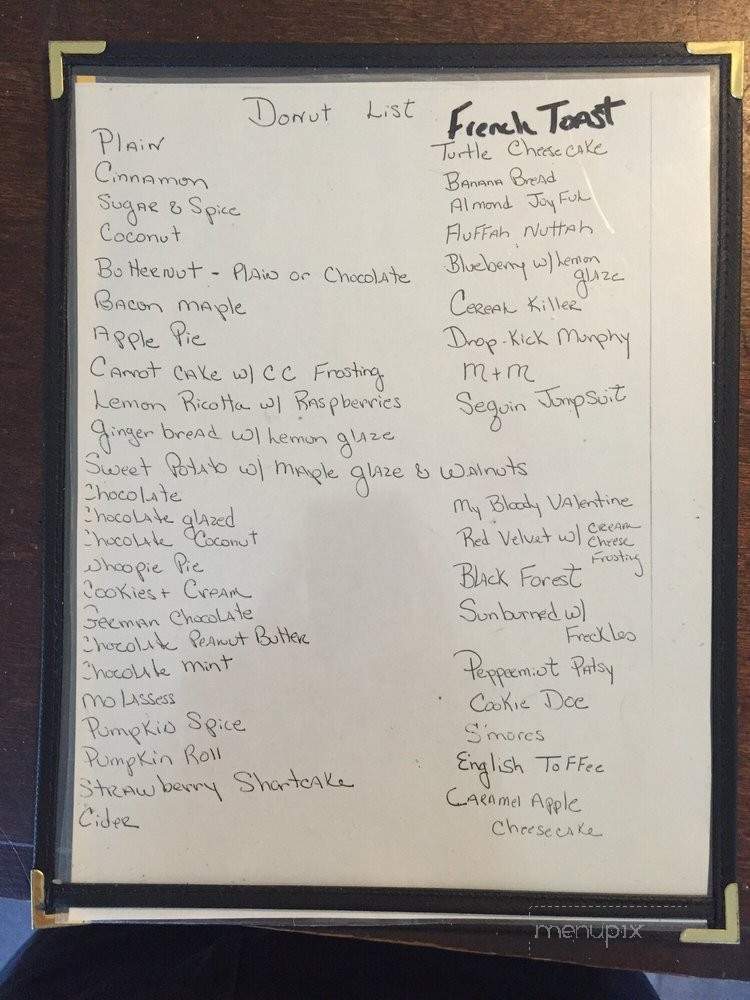 Donut List
Plain
Cinnamon
Sugar & Spice
Coconut
Butternut - Plain or Chocolate
Bacon maple
Apple Pie
Carrot cake w/ CC Frosting
Lemon Ricotta w/ Raspberries
Gingerbread w/ Lemon glaze
Sweet Potato w/ maple glaze & walnuts
Chocolate
Chocolate glazed
Chocolate Coconut
Whoopie Pie
Cookies + Cream
German Chocolate
Chocolate Peanut Butter
Chocolate mint
Molassess
Pumpkin Spice
Pumpkin Roll
Strawberry Shortcake
Cider
French Toast
Turtle Cheesecake
Banana Bread
Almond Joy Full
Fluffah Nuttah
Blueberry w/ Lemon
glaze
Cereal Killer
Drop-Kick Murphy
M + M
Sequin Jumpsuit
My Bloody Valentine
Red Velvet w/ Cream
Cheese
Frosting
Black Forest
Sunburned w/
Freckles
Peppermint Patsy
Cookie Doe
S'mores
English Toffee
Caramel Apple
Cheesecake
menupix